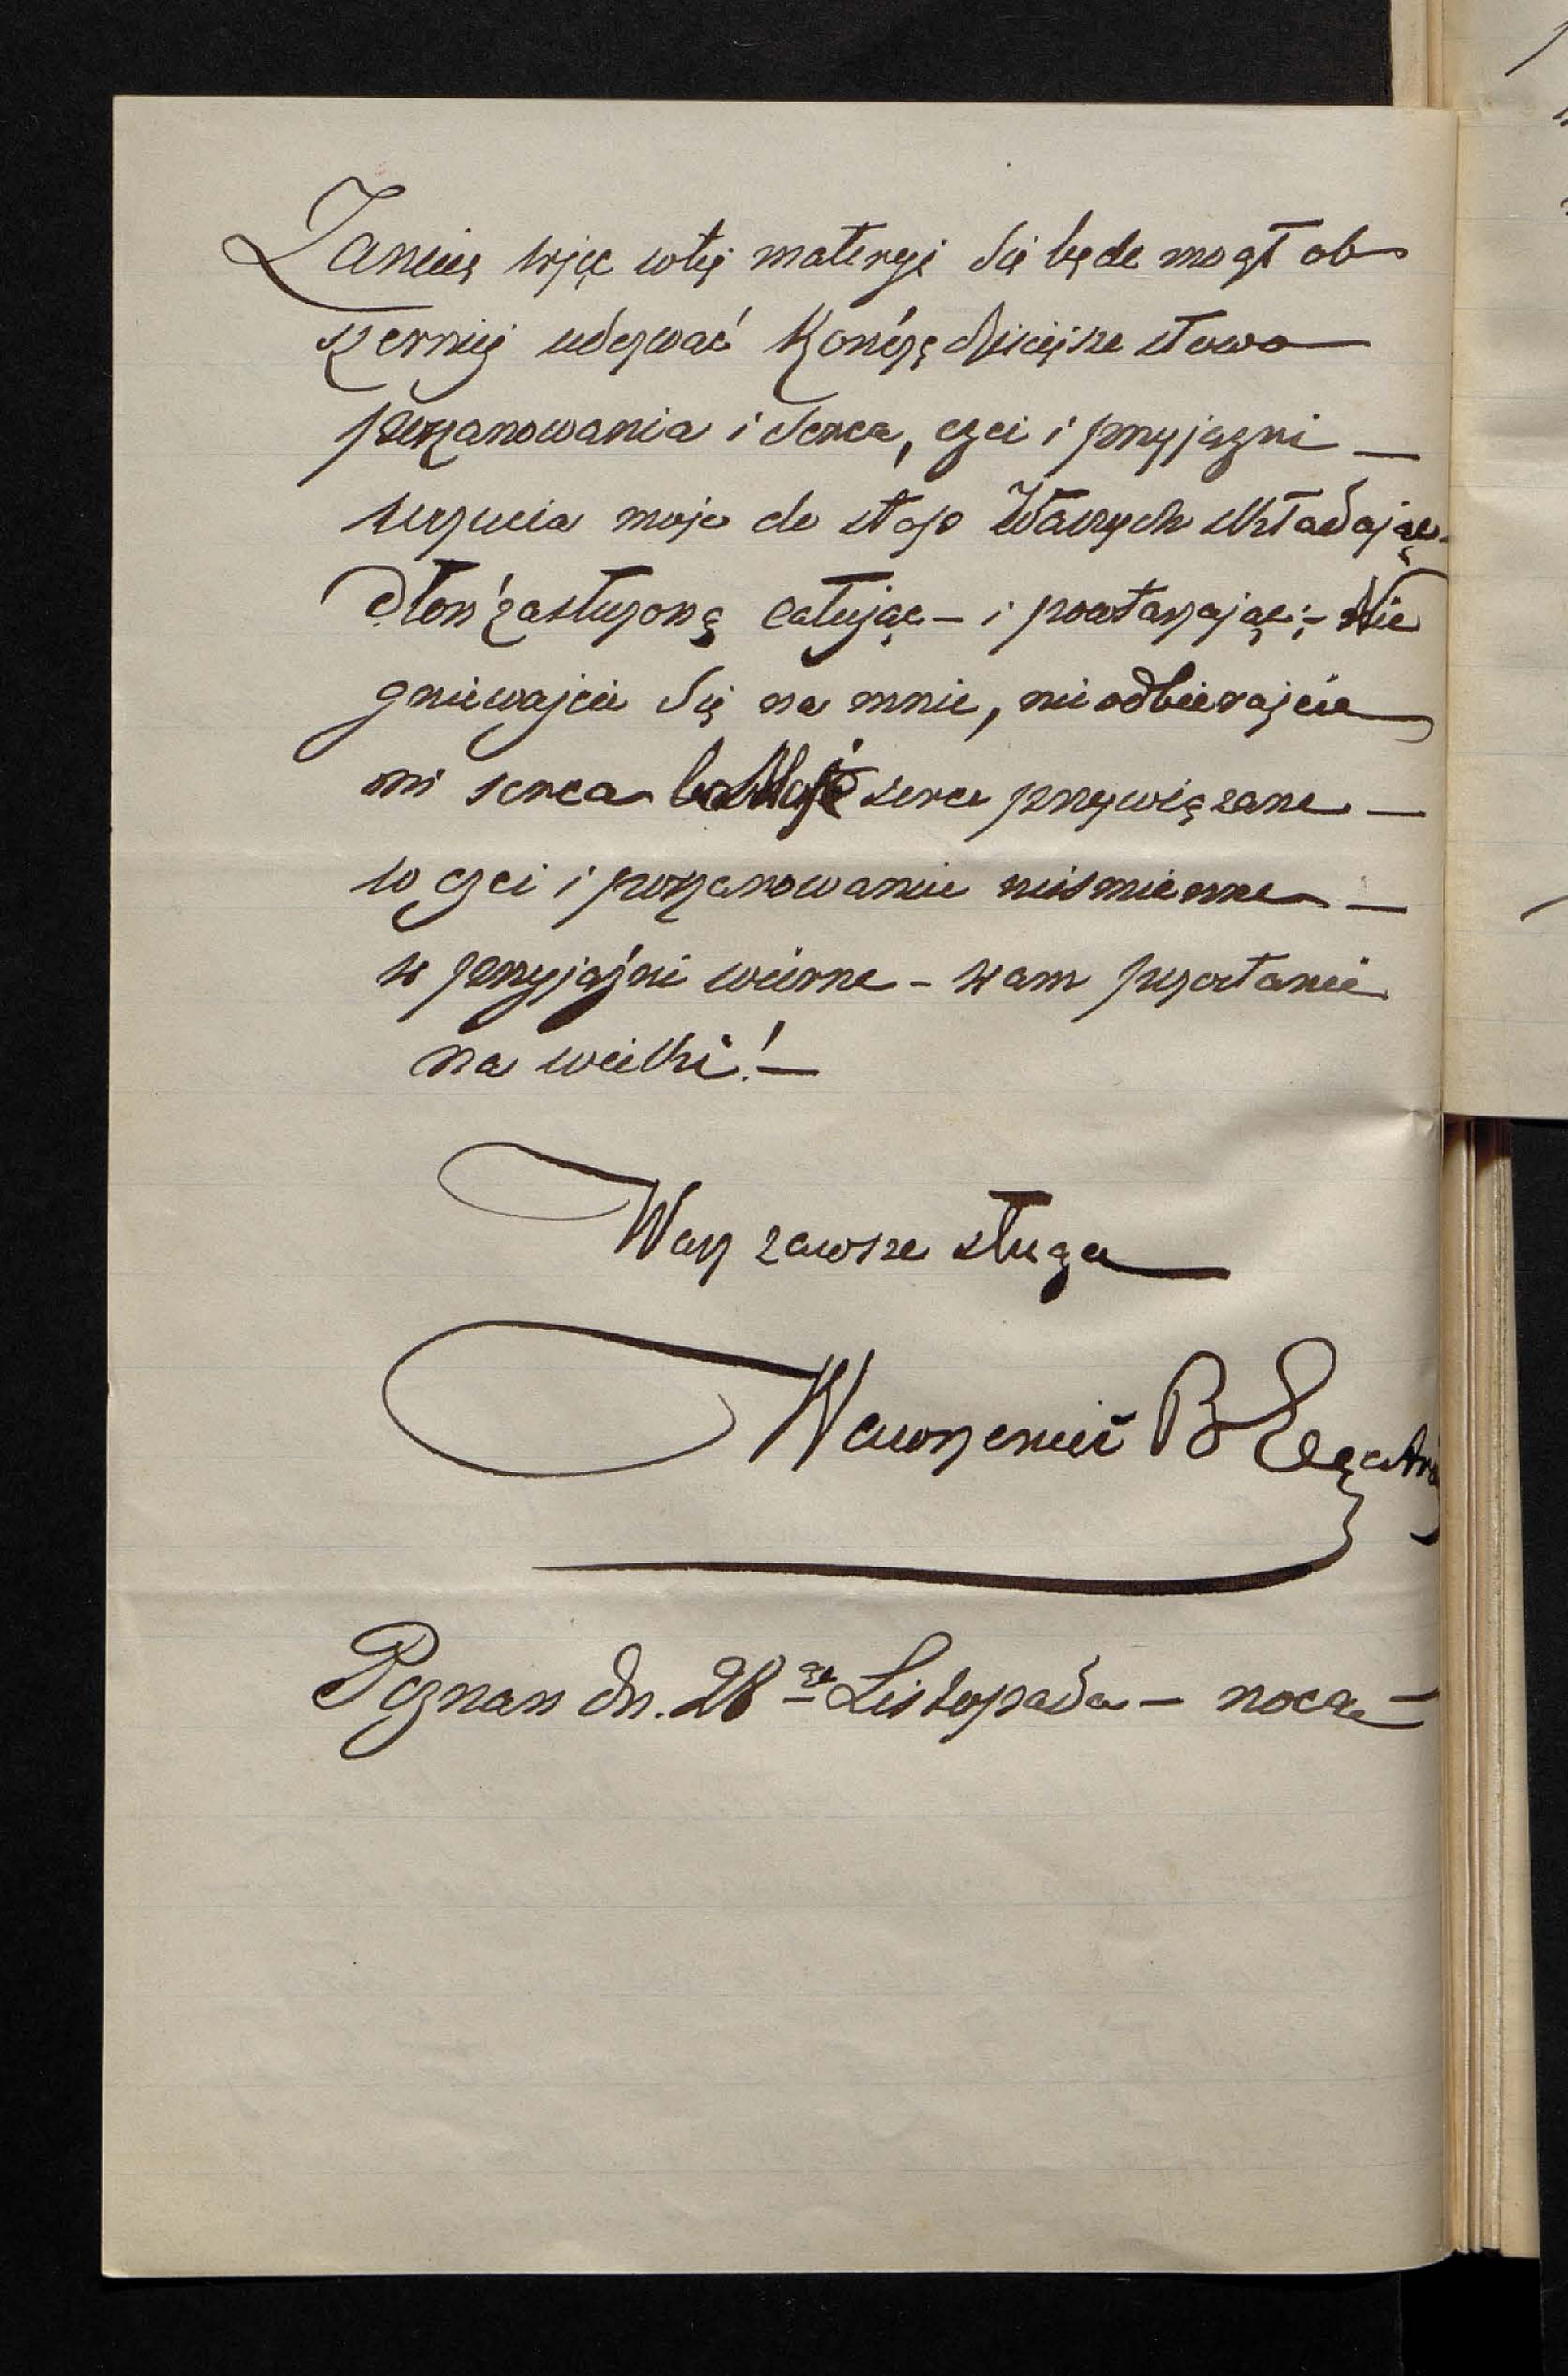 Zanim więc w tej materyi się będę mógł ob
szerniej udezwać kończę dzisiejsze słowa
poszanowania i serca, czci i przyjazni —
uczucia moje do stop Waszych składając
dłoń zasłużoną całując – i powtarzając:– Nie
gniewajcie się na mnie, nie odbierajcie
mi serca – bo Moje serce przywiązane —
w czci i poszanowaniu niezmienne —
w przyjaźni wierne – wam pozostanie
na wieki! —
Wasz zawsze sługa
Wawrzeniec B
Poznan dn. 28 Listopada – noca –